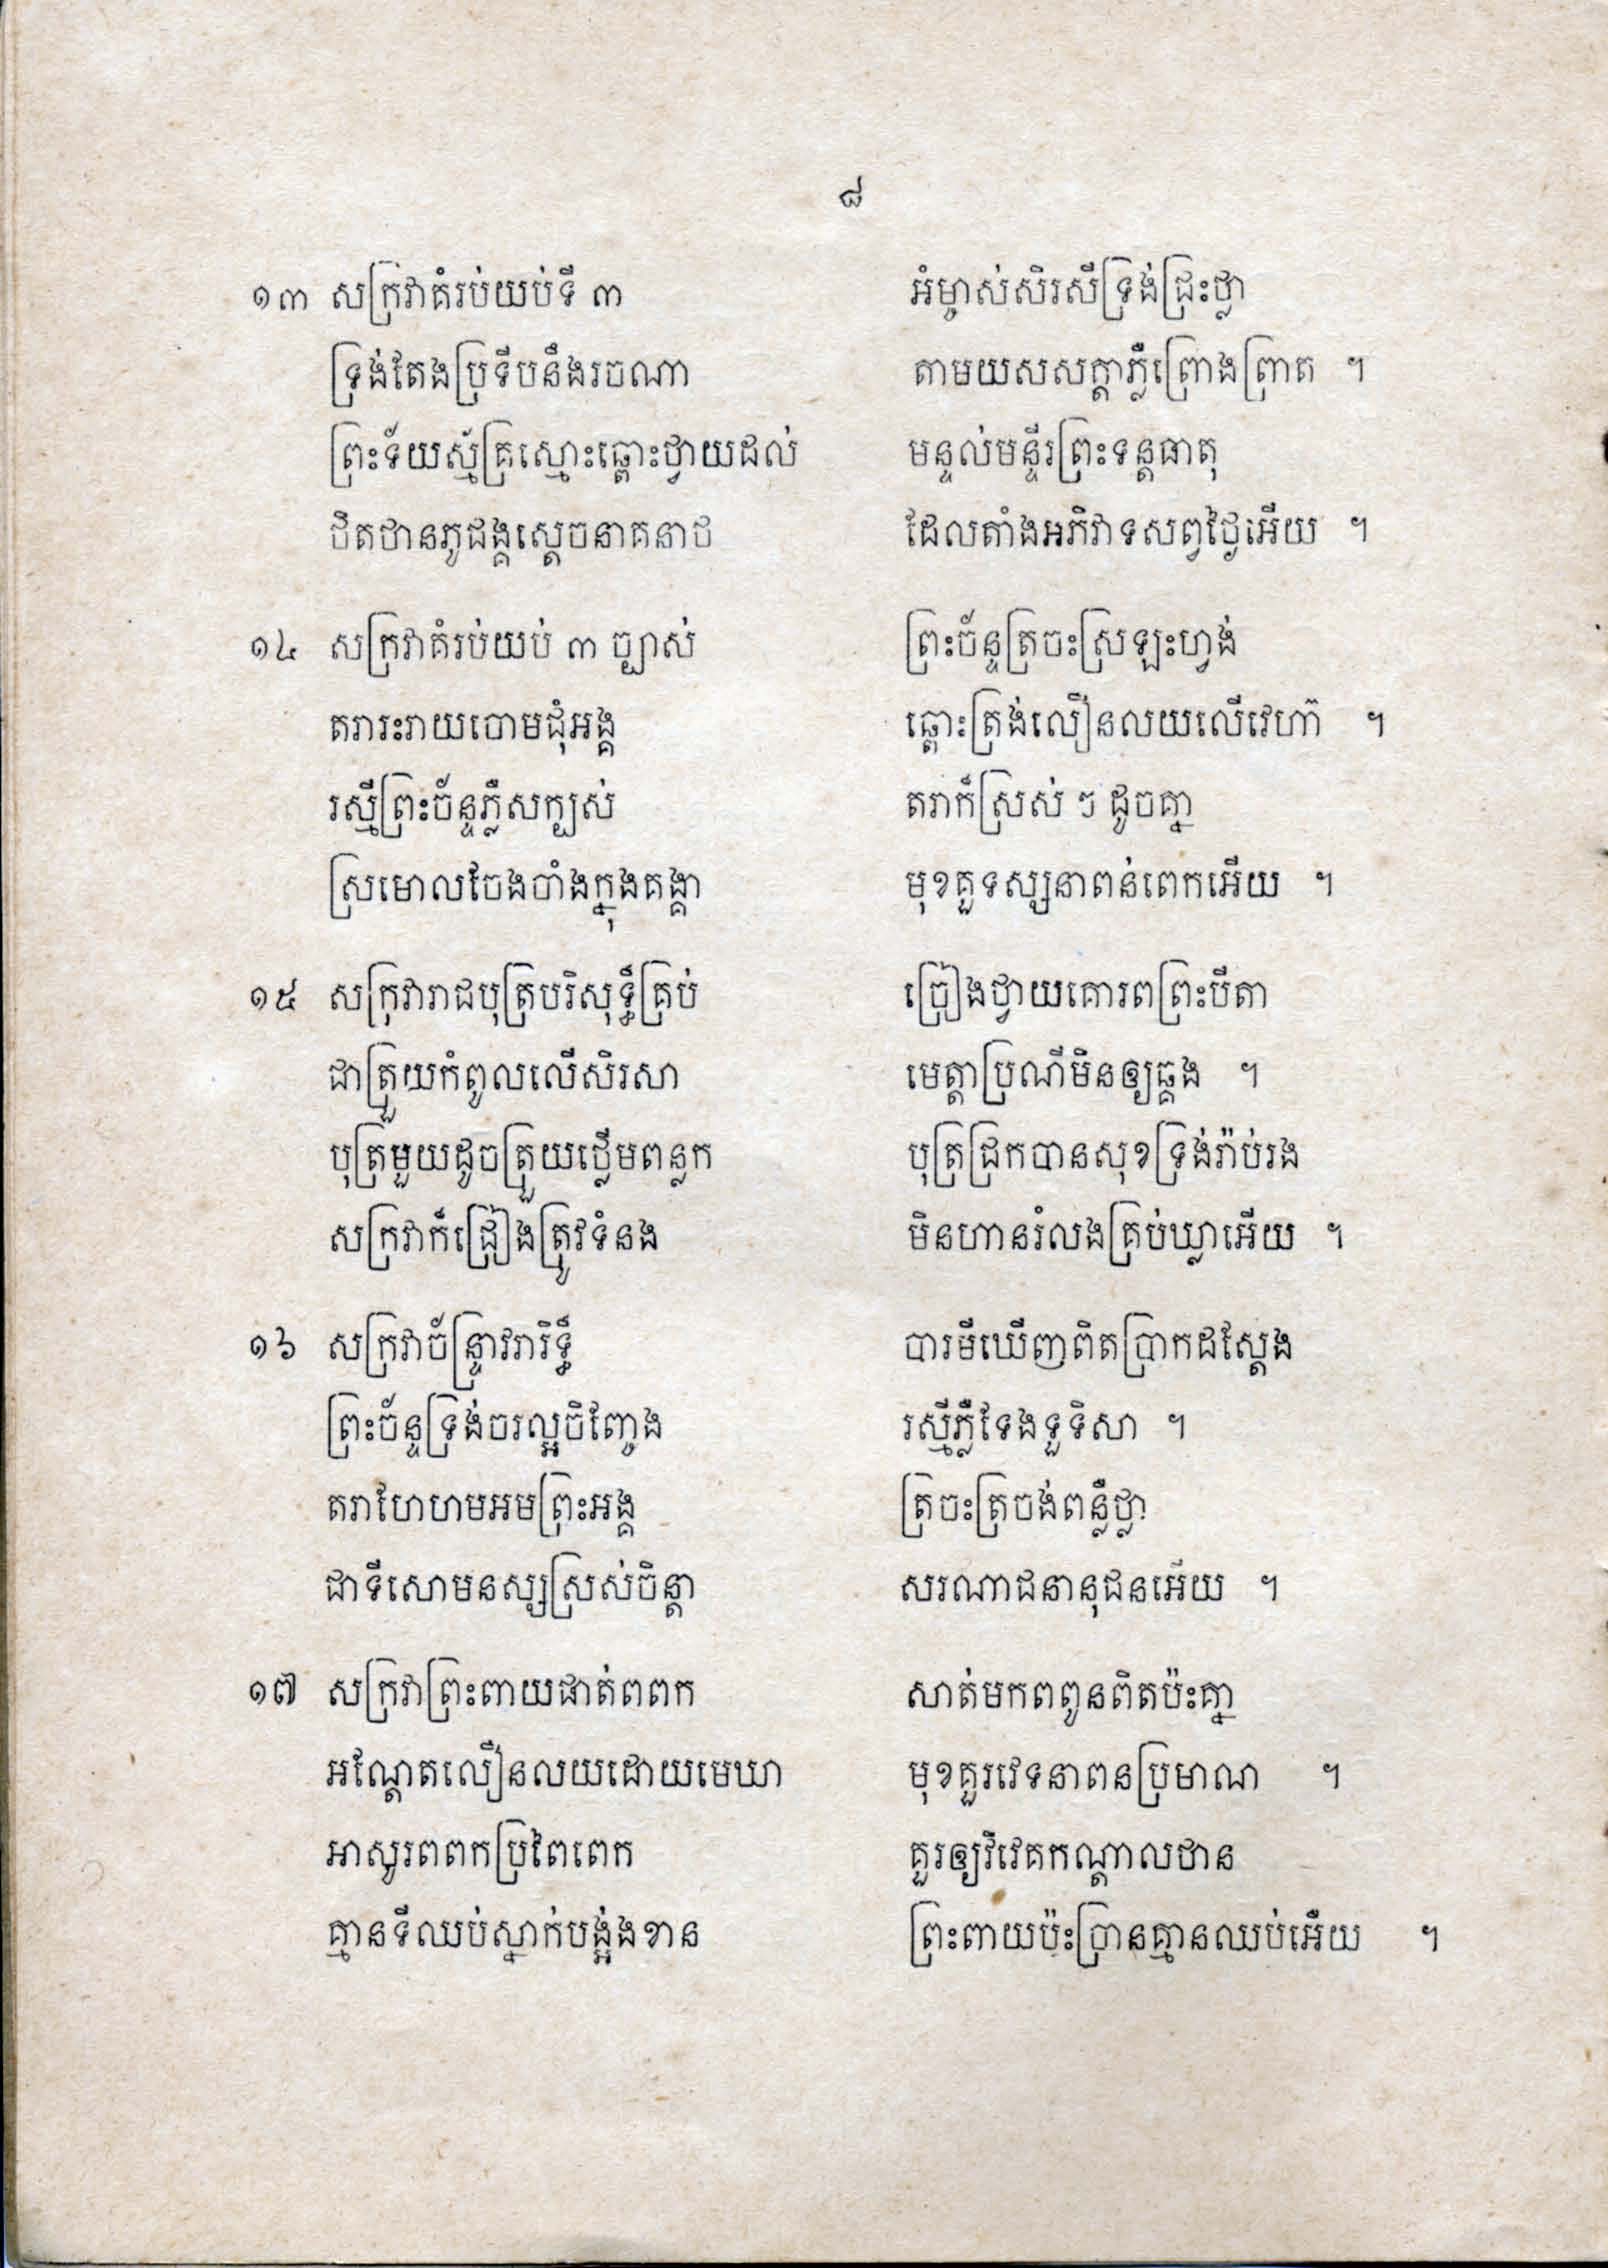 ៨
១៣ សក្រវាគំរប់យប់ទី ៣ អំម្ចាស់សិរសីទ្រង់ជ្រះថ្លា
ទ្រង់តែងប្រទីបនឹងរចណា តាមយសសក្តាភ្លឺព្រោងព្រាត ។
ព្រះទ័យស្ម័គ្រស្មោះឆ្ពោះថ្វាយដល់ មន្ទល់មន្ទីរព្រះទន្តធាតុ
ឋិតឋានភូជង្គស្តេចនាគនាថ ដែលតាំងអភិវាទសព្វថ្ងៃអើយ ។
១៤ សក្រវាគំរប់យប់ ៣ ច្បាស់ ព្រះច័ន្ទត្រចះស្រឡះហ្វង់
តរារះរាយចោមជុំអង្គ ឆ្ពោះត្រង់លឿនលយលើវេហា៎ ។
រស្មីព្រះច័ន្ទភ្លឺសក្បស់ តរាក៏ស្រស់ ៗ ដូចគ្នា
ស្រមោលចែងចាំងក្នុងគង្គា មុខគួទស្សនាពន់ពេកអើយ ។
១៥ សក្រវារាជបុត្របរិសុទ្ធិ៍គ្រប់ ច្រៀងថ្វាយគោរពព្រះបីតា
ជាត្រួយកំពូលលើសិរសា មេត្តាប្រណីមិនឲ្យឆ្គង ។
បុត្រមួយដូចត្រួយថ្លើមពន្លក បុត្រជ្រកបានសុខទ្រង់រ៉ាប់រង
សក្រវាក៏ជ្រៀងត្រូវទំនង មិនហានរំលងគ្រប់ឃ្លាអើយ ។
១៦ សក្រវាច័ន្ទ្រាវរារិទ្ធិ៍ បារមីឃើញពិតប្រាកដស្តែង
ព្រះច័ន្ទទ្រង់ចរល្អចិញ្ចែង រស្មីភ្លឺទែងទួទិសា ។
តរាហែហមអមព្រះអង្គ ត្រចះត្រចង់ពន្លឺថ្លា
ជាទីសោមនស្សស្រស់ចិន្តា សរណាជនានុជនអើយ ។
១៧ សក្រវាព្រះពាយផាត់ពពក សាត់មកពពូនពិតប៉ះគ្នា
អណ្តែតលឿនលយដោយមេឃា មុខគួរវេទនាពនប្រមាណ ។
អាសូរពពកប្រពៃពេក គួរឲ្យវិវេគកណ្តាលឋាន
គ្មានទីឈប់ស្នាក់បង្អង់ខាន ព្រះពាយប៉ះប្រានគ្មានឈប់អើយ ។